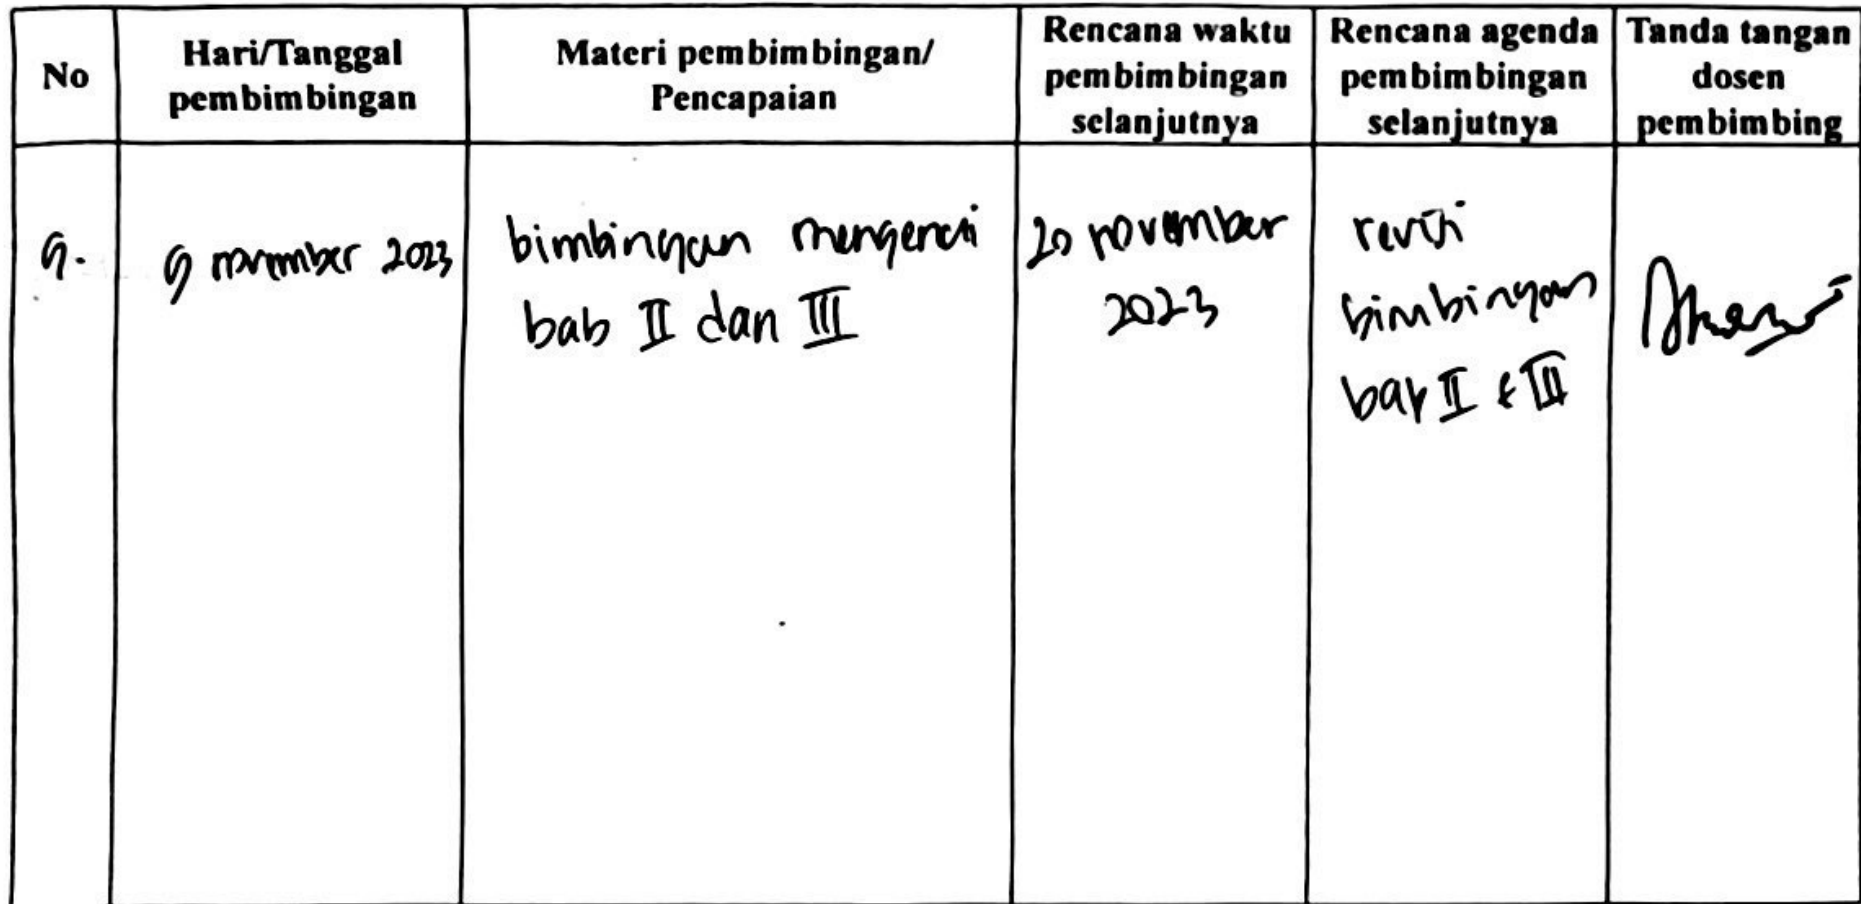 No
Hari/Tanggal
pembimbingan
Materi pembimbingan/
Pencapaian
Rencana waktu
pembimbingan
selanjutnya
Rencana agenda
pembimbingan
selanjutnya
Tanda tangan
dosen
pembimbing
9.
9 november 2023
bimbingan mengenai
bab II dan III
20 november
2023
revisi
bimbingan
bab II & III